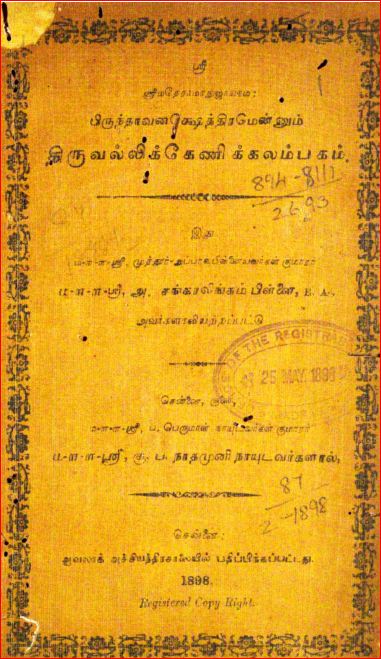 ஸ்ரீ
ஸ்ரீமதேராமாநுஜாயநம:
பிருந்தாவனக்ஷேத்திரமென்னும்
திருவல்லிக்கேணிக்கலம்பகம்.
894-8111
2693
இது
ம-ள-ள-ஸ்ரீ, முத்தூர்-அப்பாவுபிள்ளையவர்கள் குமாரர்
ம-ள-ள-ஸ்ரீ, அ. சங்கரலிங்கம் பிள்ளை, B. A.,
அவர்களாலியற்றப்பட்டு
OF THE REGISTRAR
25 MAY 1898
சென்னை,
ம-ள-ள-ஸ்ரீ, ப. பெருமாள் நாயுடவர்கள் குமாரர்
ம-ள-ள-ஸ்ரீ, கூ. ப. நாதமுனி நாயுடவர்களால்,
87
2-1898
சென்னை:
அச்சியந்திரசாலையில் பதிப்பிக்கப்பட்டது.
1898.
Registered Copy Right.